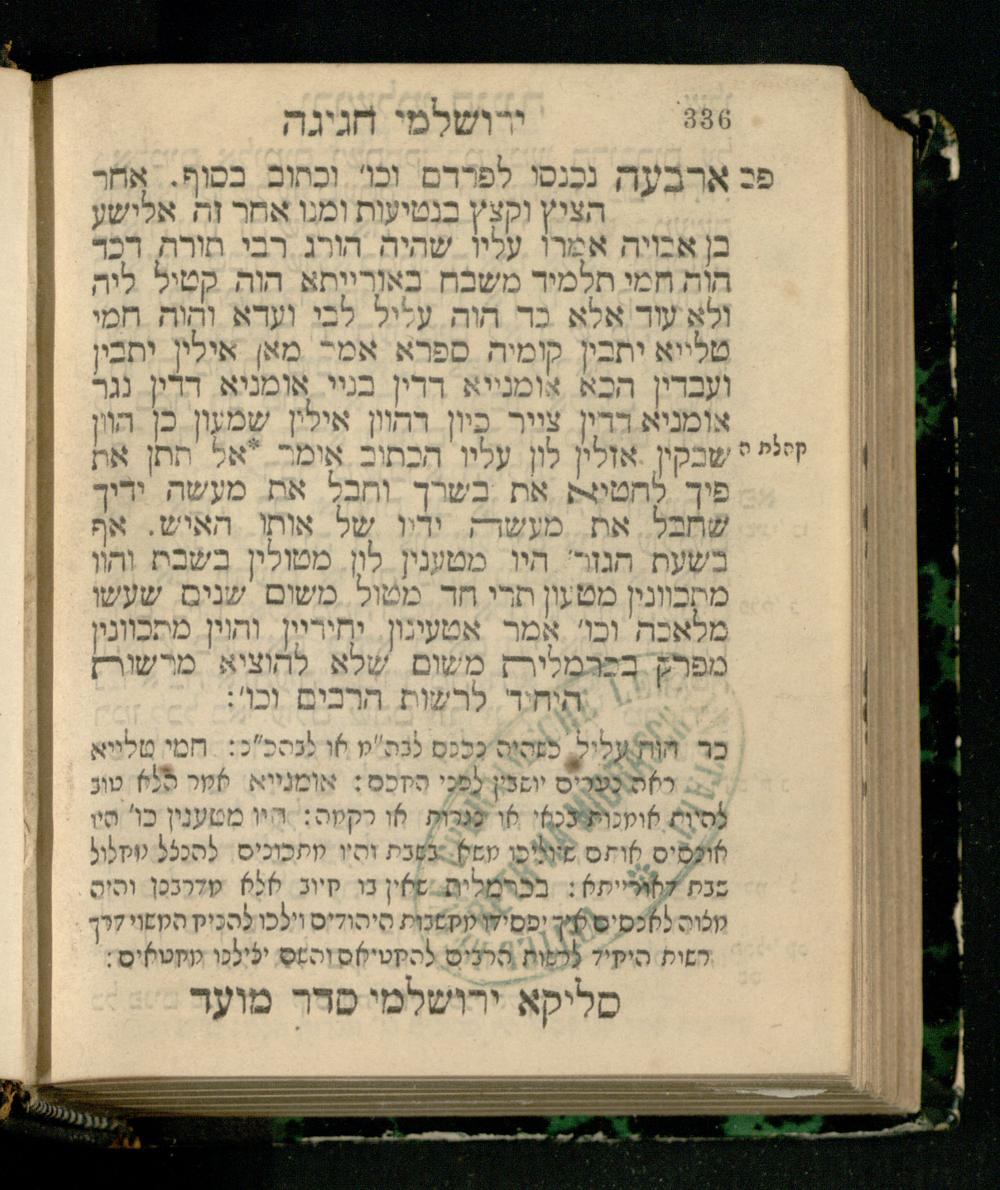 336
ירושלמי חגיגה
פב ארבעה נכנסו לפרדס וכו' וכתוב בסוף. אחר
הציץ וקצץ בנטיעות ומנו אחר זה אלישע
בן אבויה אמרו עליו שהיה הורג רבי תורה דכד
הוה חמי תלמיד משבח באורייתא הוה קטיל ליה
ולא עוד אלא כד הוה עליל לבי ועדא והוה חמי
טלייא יתבין קומיה ספרא אמר מאן אילין יתבין
ועבדין הכא אומנייא דדין בניי אומניא דדין נגר
אומניא דדין צייר כיון דהוון אילין שמעון כן הוון
שבקין אזלין לון עליו הכתוב אומר *אל תתן את
קהלת ה
פיך לחטיא את בשרך וחבל את מעשה ידיך
שחבל את מעשה ידיו של אותו האיש. אף
בשעת הגזר' היו מטענין לון מטולין בשבת והוו
מתכוונין מטעון תרי חד מטול משום שנים שעשו
מלאכה וכו' אמר אטעינון יחידיין והוין מתכוונין
מפרק בכרמלית משום שלא להוציא מרשות
היחיד לרשות הרבים וכו':
כד הוה עליל כשהיה נכנס לבה"מ או לבהכ"נ: חמי טלייא
ראה נערים יושבין לפני החכם: אומנייא אמר הלא טוב
להיות אומנות בנאי או נגרות או רקמה: היו מטענין כו' היו
אונסים אותם שיוליכו משא בשבת והיו מתכונים להנצל מחלול
שבת דאורייתא: בכרמלית שאין בו חיוב אלא מדרבנן והיה
מצוה לאנסים איך יפסידו מחשבות היהודים וילכו להניח המשוי דרך
רשות היחיד לרשות הרבים להחטיאם והשם יצילנו מחטאים:
סליקא ירושלמי סדר מועד